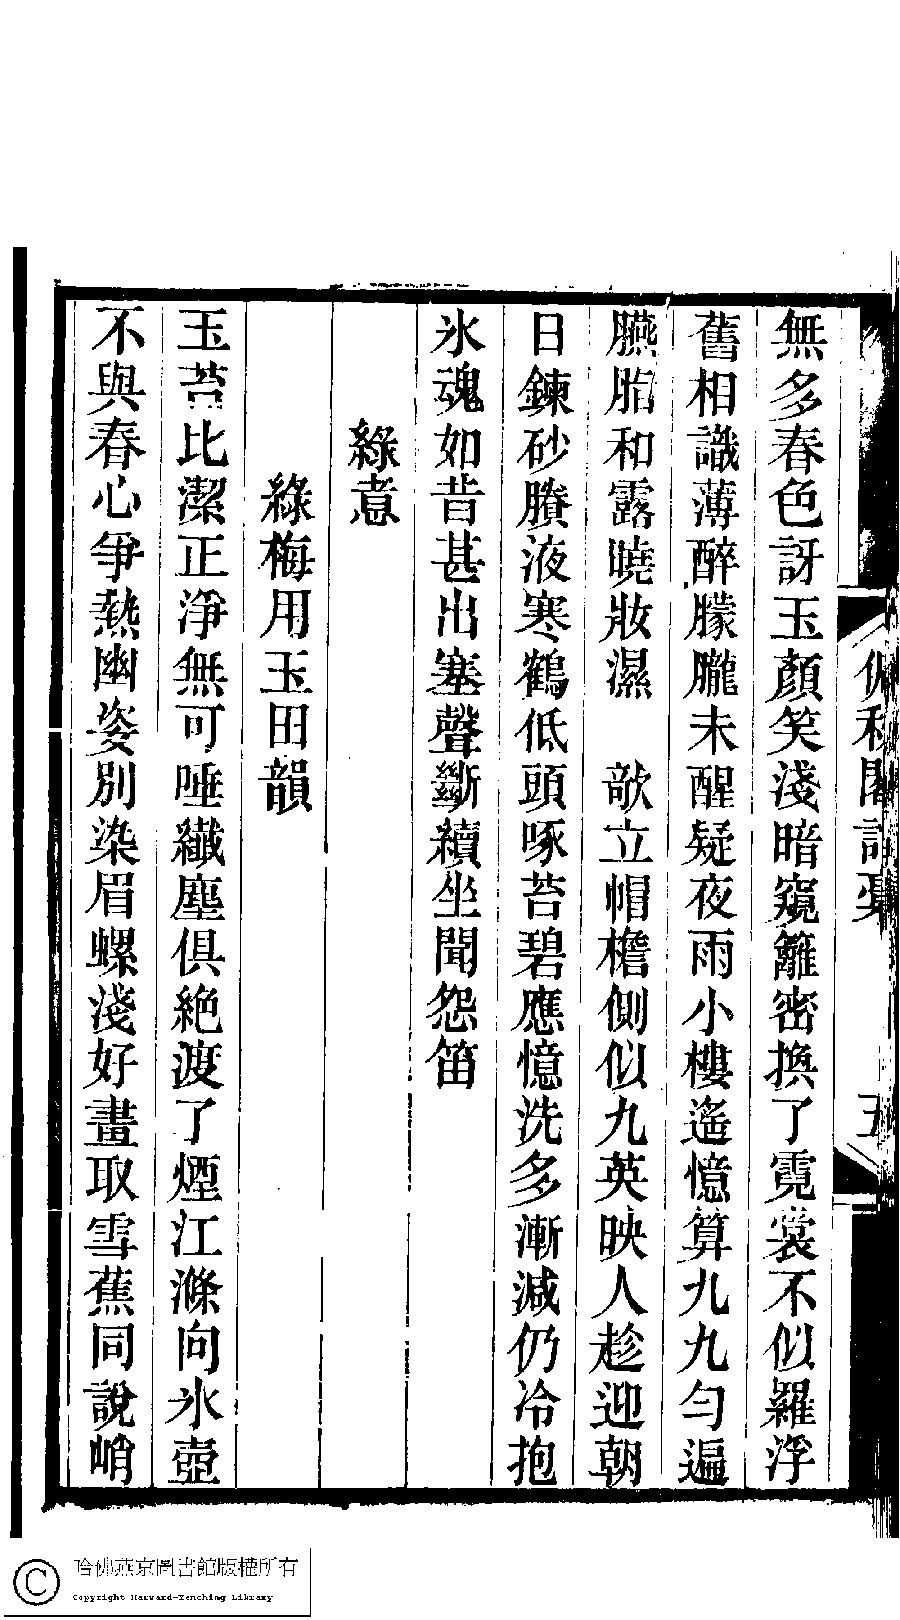 無多春色訝玉顏笑淺暗窺籬密換了霓裳不似羅浮
舊相識薄醉朦朧未醒疑夜雨小樓遙憶算九九勻遍
臙脂和露曉妝濕　欹立帽檐側似九英映人趁迎朝
日鍊砂賸液寒鶴低頭啄苔碧應憶洗多漸減仍冷抱
氷魂如昔甚出塞聲斷續坐聞怨笛
綠意
綠梅用玉田韻
玉苔比潔正淨無可唾纖塵俱絶渡了煙江滌向氷壺
不與春心爭熱幽姿別染眉螺淺好畫取雪蕉同說峭
五
哈佛燕京圖書館版權所有
Copyright Harvard-Yenching Library